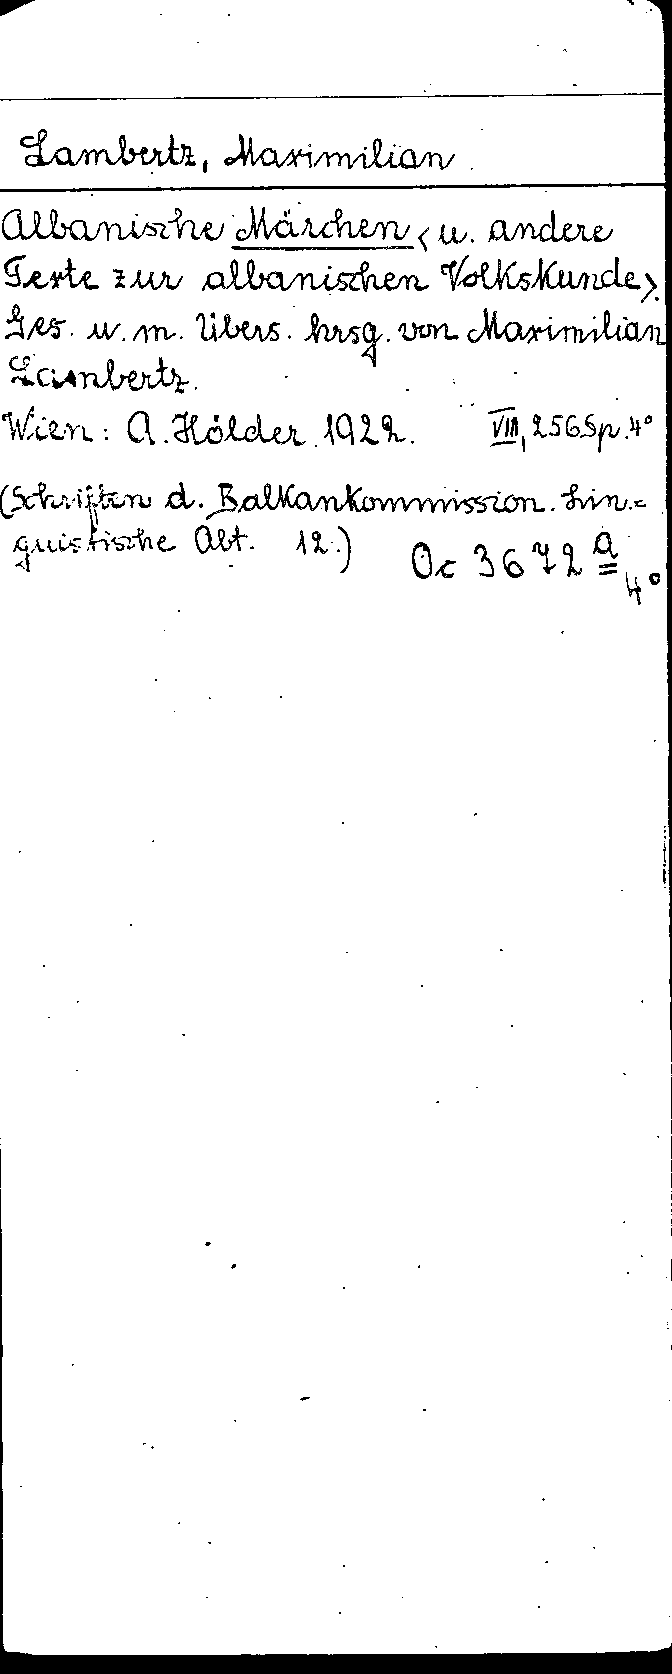 Lambertz, Maximilian
Albanische Märchen <u. andere
Texte zur albanischen Volkskunde>.
Ges. u. m. Übers. hrsg. von Maximilian
Lambertz.
Wien: A. Hölder 1922. VIII, 256 Sp. 4°
(Schriften d. Balkankommission. Lin=
guistische Abt. 12.)
Oc 3672 a 4°